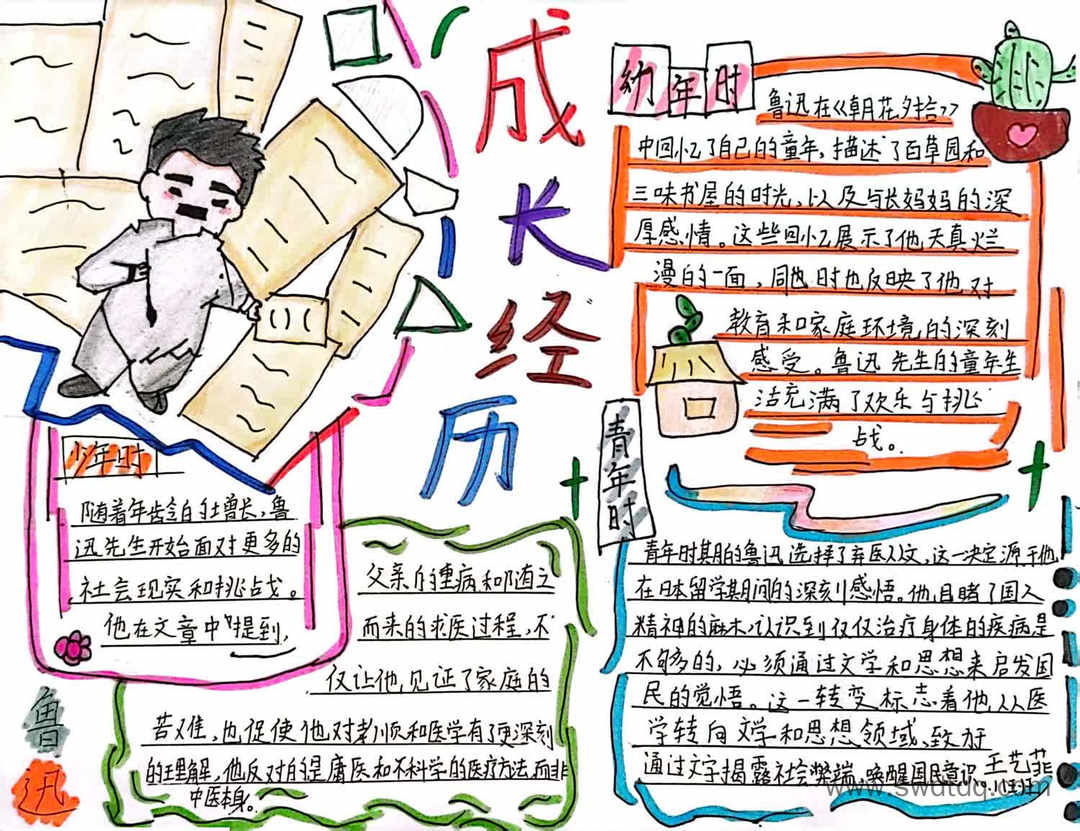 成长经历
幼年时
鲁迅在《朝花夕拾》
中回忆了自己的童年,描述了百草园和
三味书屋的时光,以及与长妈妈的深
厚感情。这些回忆展示了他天真烂
漫的一面,同时也反映了他对
教育和家庭环境的深刻
感受。鲁迅先生的童年生
活充满了欢乐与挑
战。
少年时
随着年龄的增长,鲁
迅先生开始面对更多的
社会现实和挑战。
他在文章中提到,
父亲的重病和随之
而来的求医过程,不
仅让他见证了家庭的
苦难,也促使他对和医学有了更深刻
的理解,他反对的是庸医和不科学的医疗方法,而非
中医本身。
青年时
青年时期的鲁迅选择了弃医从文,这一决定源于他
在日本留学期间的深刻感悟。他目睹了国人
精神的麻木,认识到仅仅治疗身体的疾病是
不够的,必须通过文学和思想来启发国
民的觉悟。这一转变标志着他从医
学转向文学和思想领域,致力于
通过文字揭露社会弊端,唤醒国民意识。
鲁迅